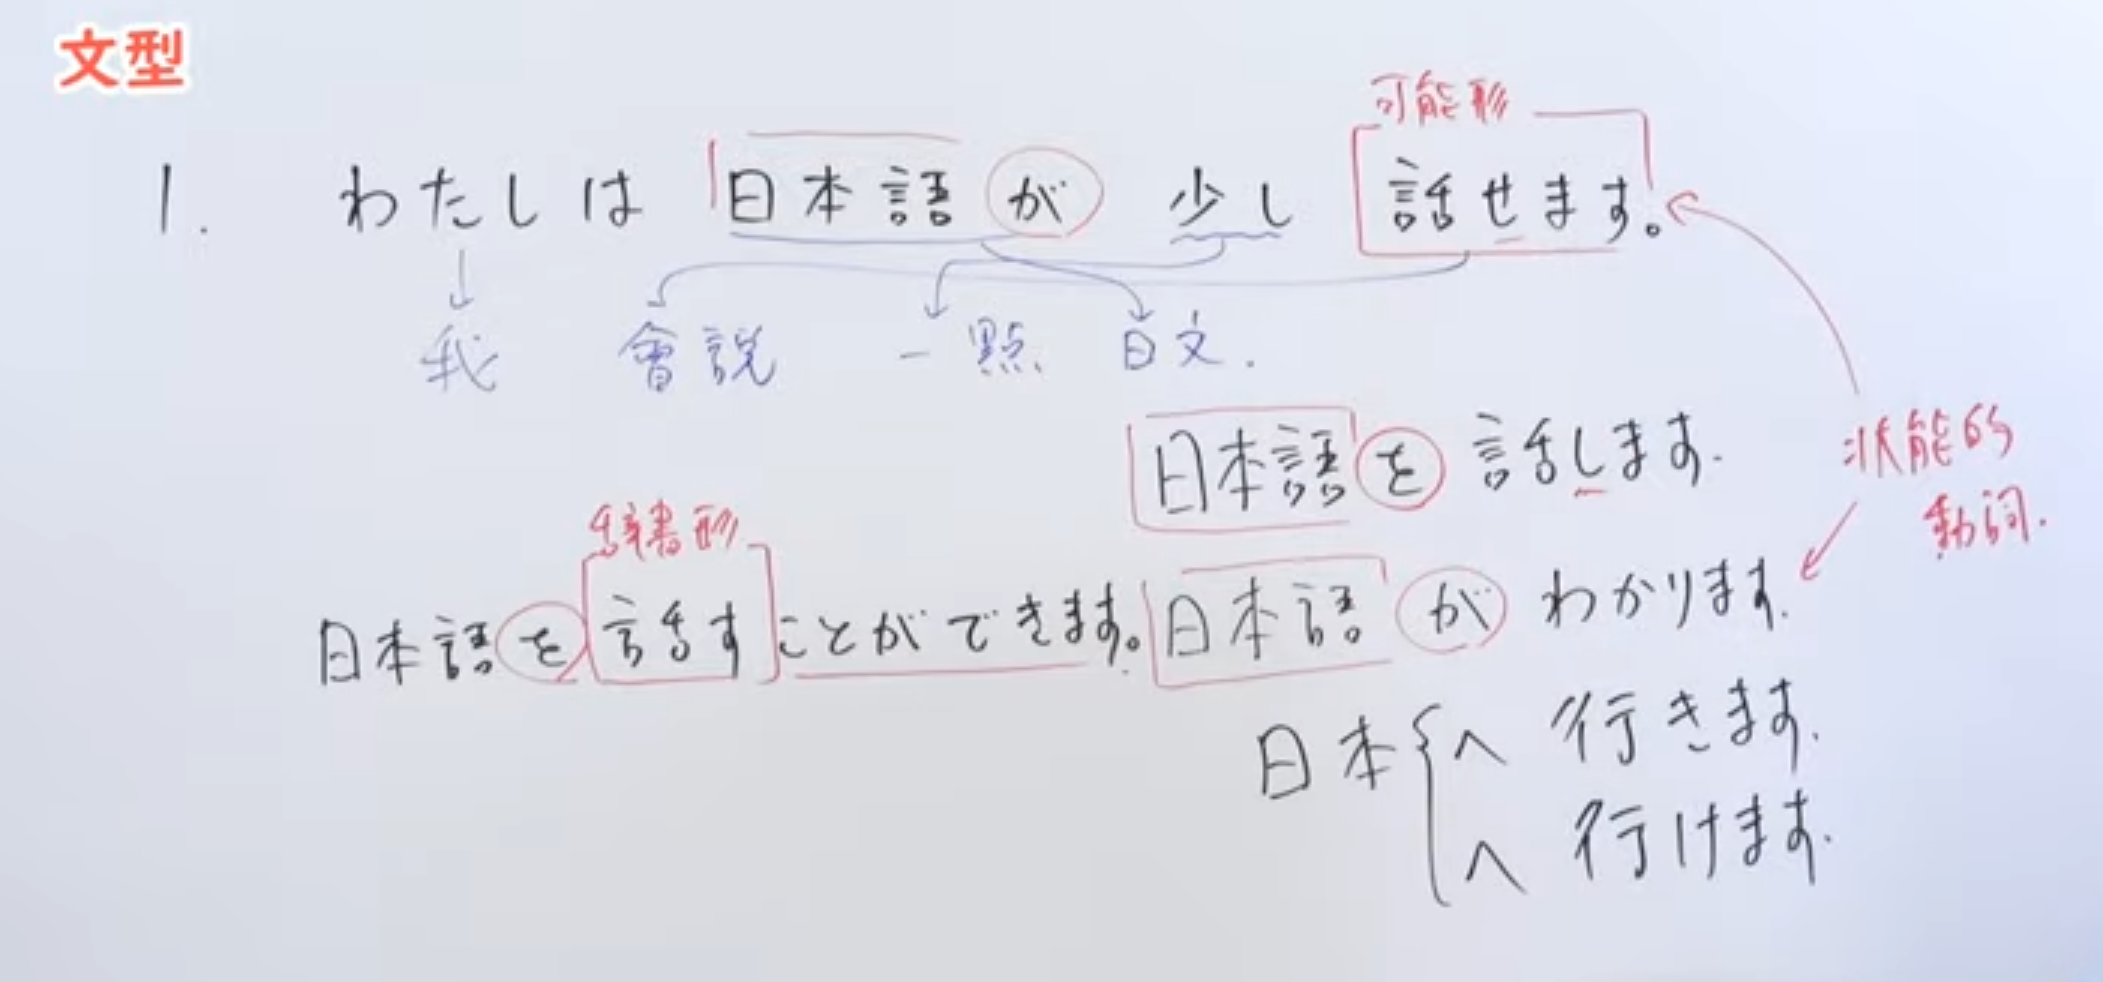 文型
可能形
1. わたしは 日本語が 少し 話せます。
我 會說 一點 日文.
日本語を話します.
状能的
動詞.
辞書形
日本語を話すことができます。
日本語がわかります.
日本 へ 行きます.
へ 行けます.